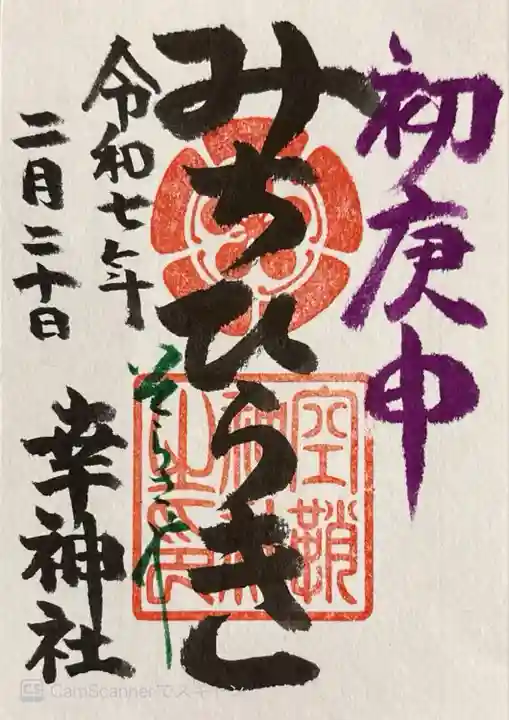 初庚申
みちひらき
空鞘
神社
之印
そらさや
令和七年
二月二十日
幸神社
CS CamScannerでスキャン